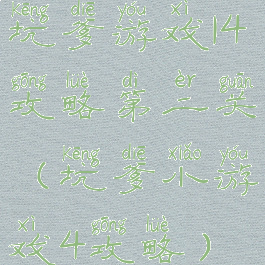 kēng diē yóu xì
坑爹游戏14
gōng lüè dì èr guān
攻略第二关
kēng diē xiǎo yóu
(坑爹小游
xì gōng lüè
戏4攻略)